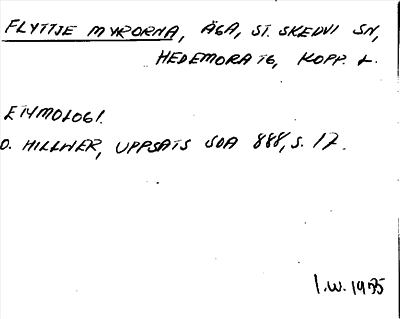 FLYTTJE MYRORNA, ÄGA, ST. SKEDVI SN,
HEDEMORA TG, KOPP. L.
ETYMOLOGI.
O. HILLNER, UPPSATS SOA 888, S. 17.
I.W. 1955